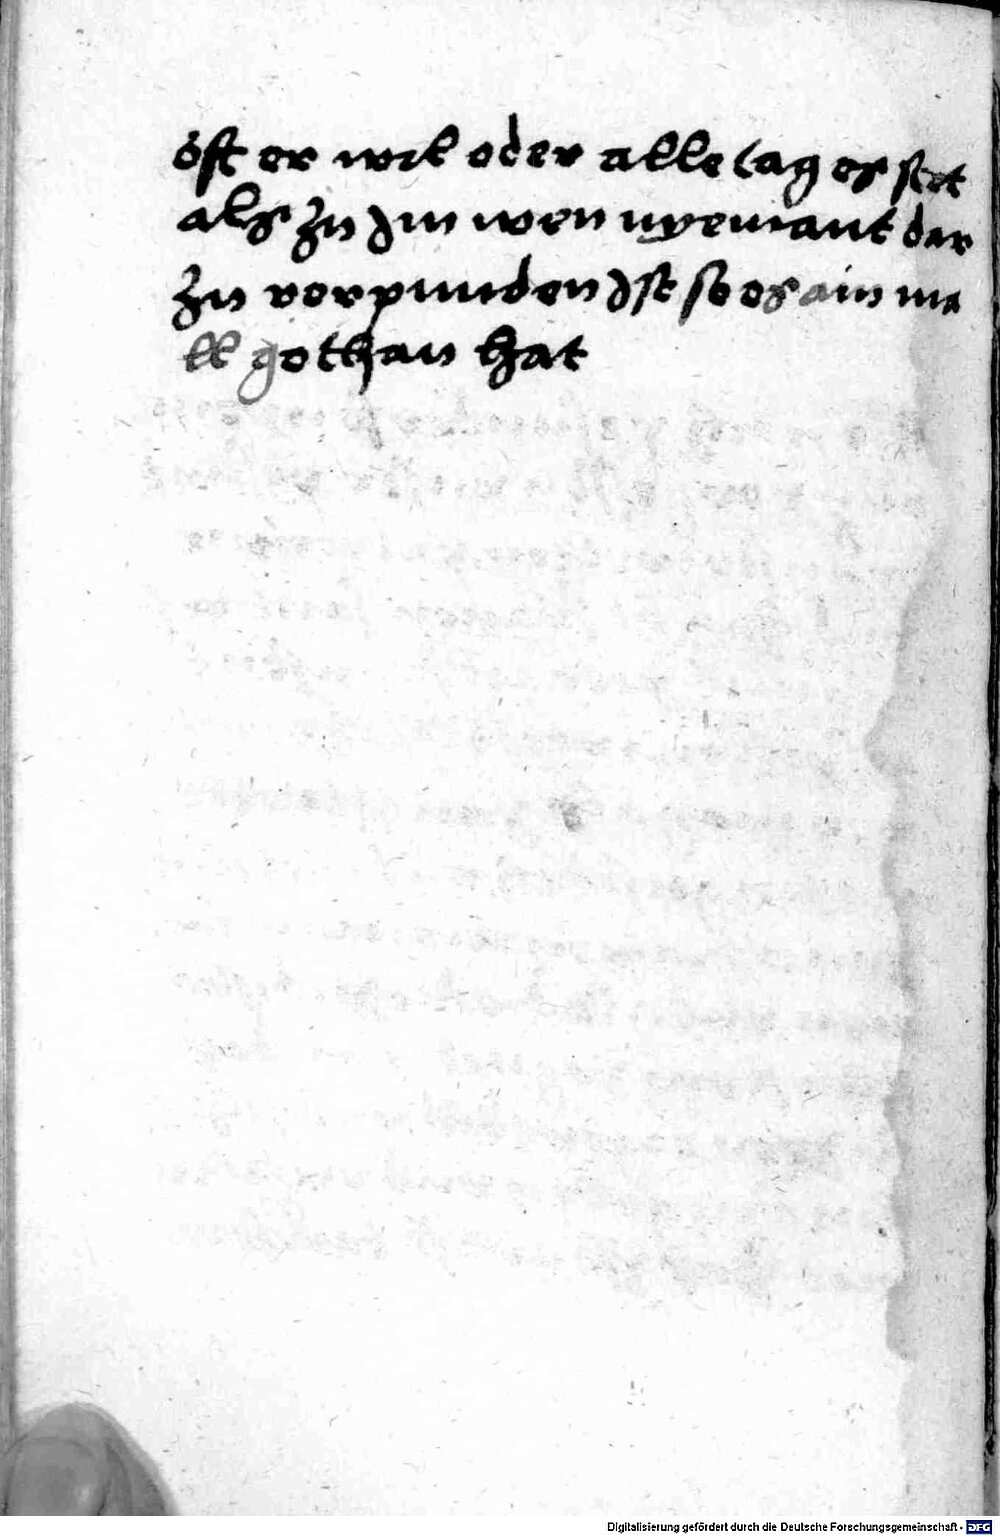 oft er wil oder alle tag es stet
als zu Im wen nyemant dar
zu verpunden Ist so es ain ma
ll gethan hat
Digitalisierung gefördert durch die Deutsche Forschungsgemeinschaft - DFG